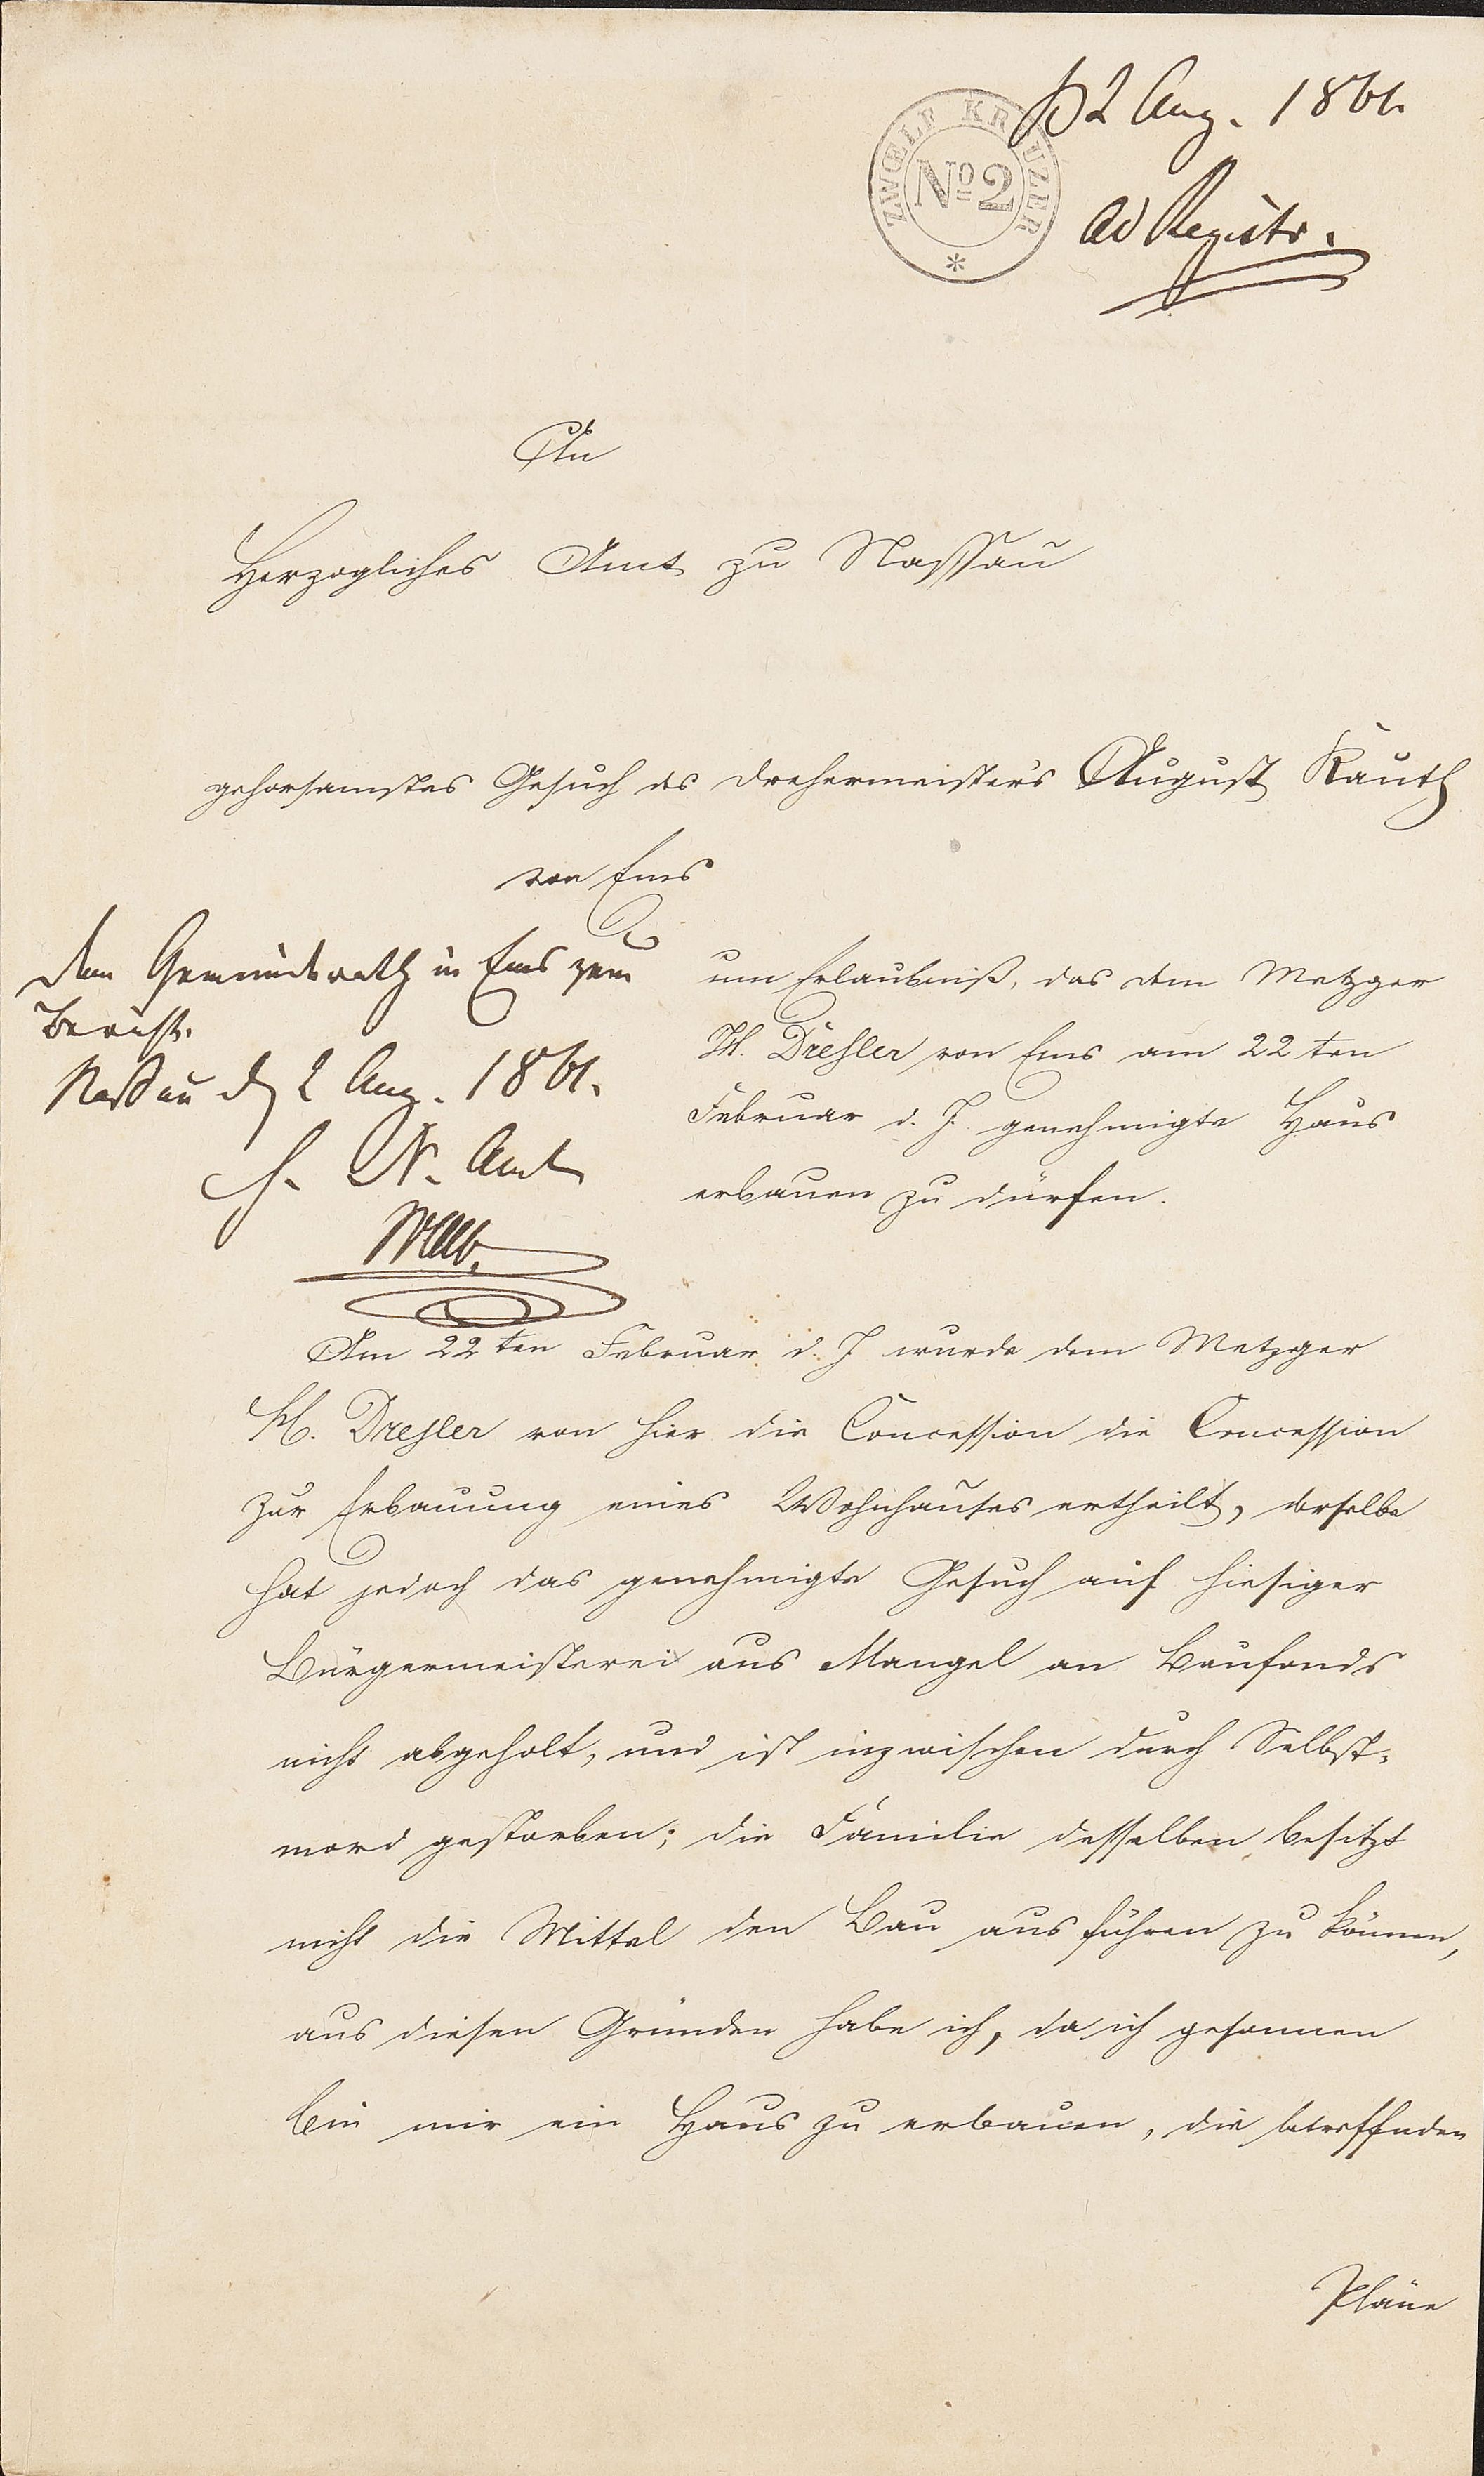 2 Aug. 1861.
ZWŒLF KREUZER
No 2
ad Registr.
An
Herzogliches Amt zu Nassau
gehorsamstes Gesuch des Drehermeisters August Kauth
von Ems
um Erlaubniß, das dem Metzger
Dreßler von Ems am 22ten
Februar d. J. genehmigte Haus
erbauen zu dürfen.
Dem Gemeinderath in Ems zum
Bericht.
Nassau d. 2 Aug. 1861.
H. N. Amt
Am 22ten Februar d. J wurde dem Metzger
Dreßler von hier die Concession die Concession
zur Erbauung eines Wohnhauses ertheilt, derselbe
hat jedoch das genehmigte Gesuch auf hiesiger
Bürgermeisterei aus Mangel an Baufonds
nicht abgeholt, und ist inzwischen durch Selbst-
mord gestorben; die Familie desselben besitzt
nicht die Mittel den Bau ausführen zu können,
aus diesen Gründen habe ich, da ich gesonnen
bin mir ein Haus zu erbauen, die betreffenden
Pläne